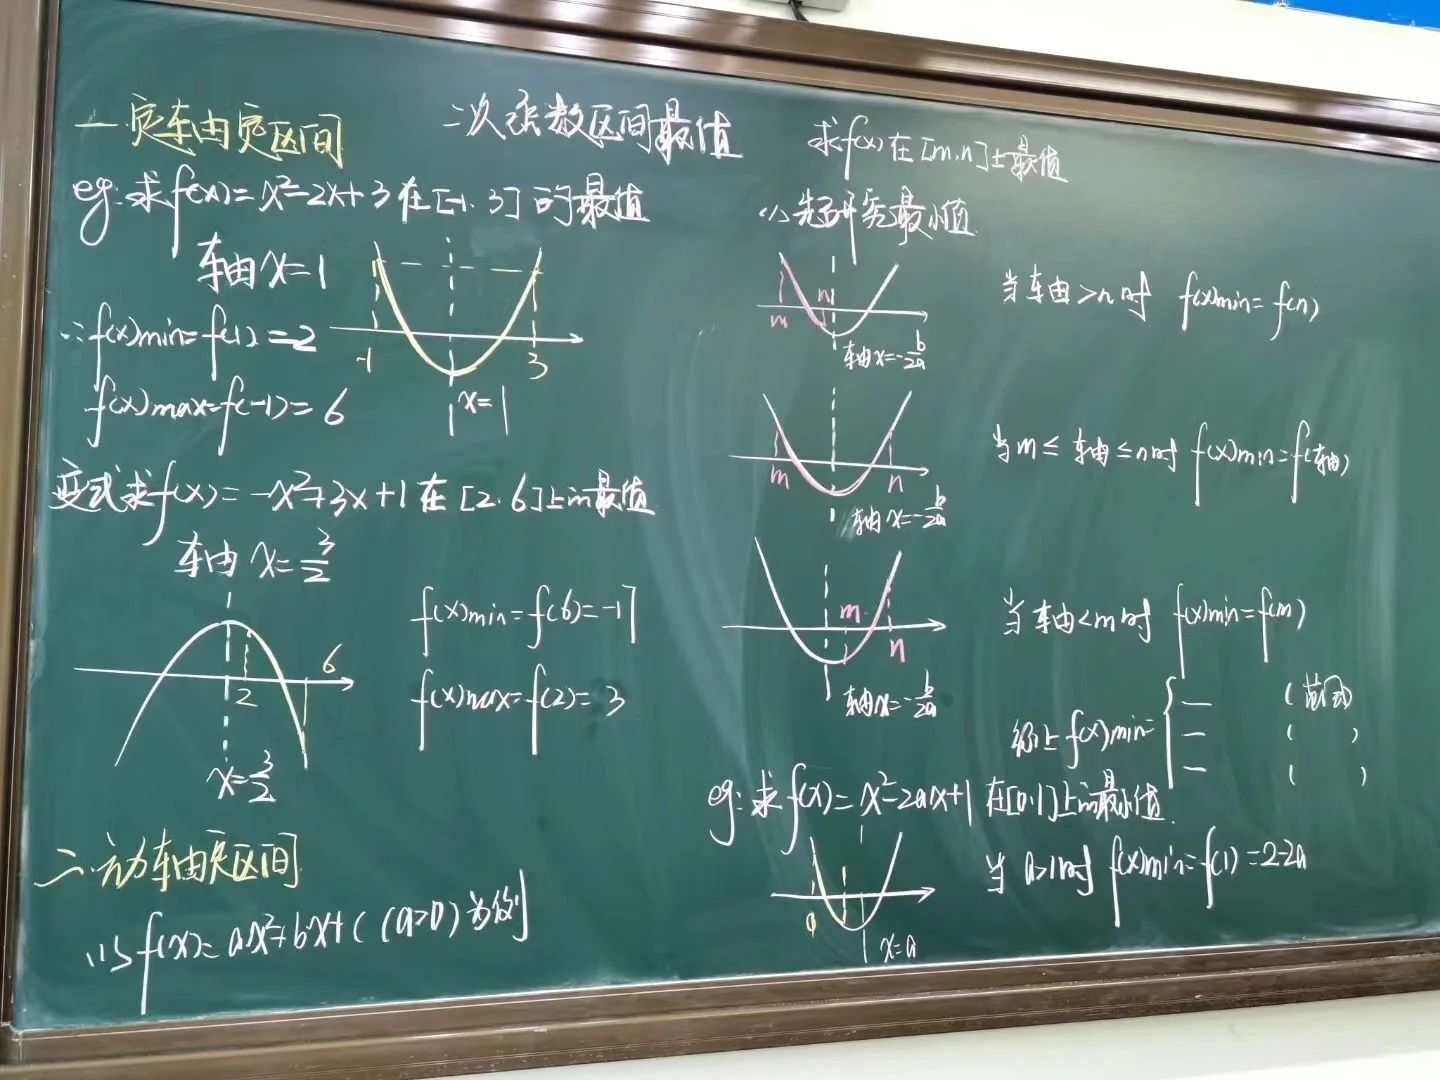 二次函数区间最值
一 定轴定区间
eg: 求f(x)=x²-2x+3在[-1,3]的最值
轴x=1
∴f(x)min=f(1)=2
f(x)max=f(-1)=6
-1
3
x=1
变式求f(x)=-x²+3x+1在[2,6]上的最值
轴x=3/2
f(x)min=f(6)=-17
f(x)max=f(2)=3
2
6
x=3/2
二.动轴定区间
以f(x)=ax²+bx+c(a>0)为例
求f(x)在[m,n]上最值
(1)先研究最小值
m
n
轴x=-b/2a
当轴>n时 f(x)min=f(n)
m
n
轴x=-b/2a
当m≤轴≤n时 f(x)min=f(轴)
m
n
轴x=-b/2a
当轴<m时 f(x)min=f(m)
综上f(x)min={ — (范围)
— ( )
— ( )
eg: 求f(x)=x²-2ax+1在[0,1]上的最小值
0
x=a
当a>1时 f(x)min=f(1)=2-2a